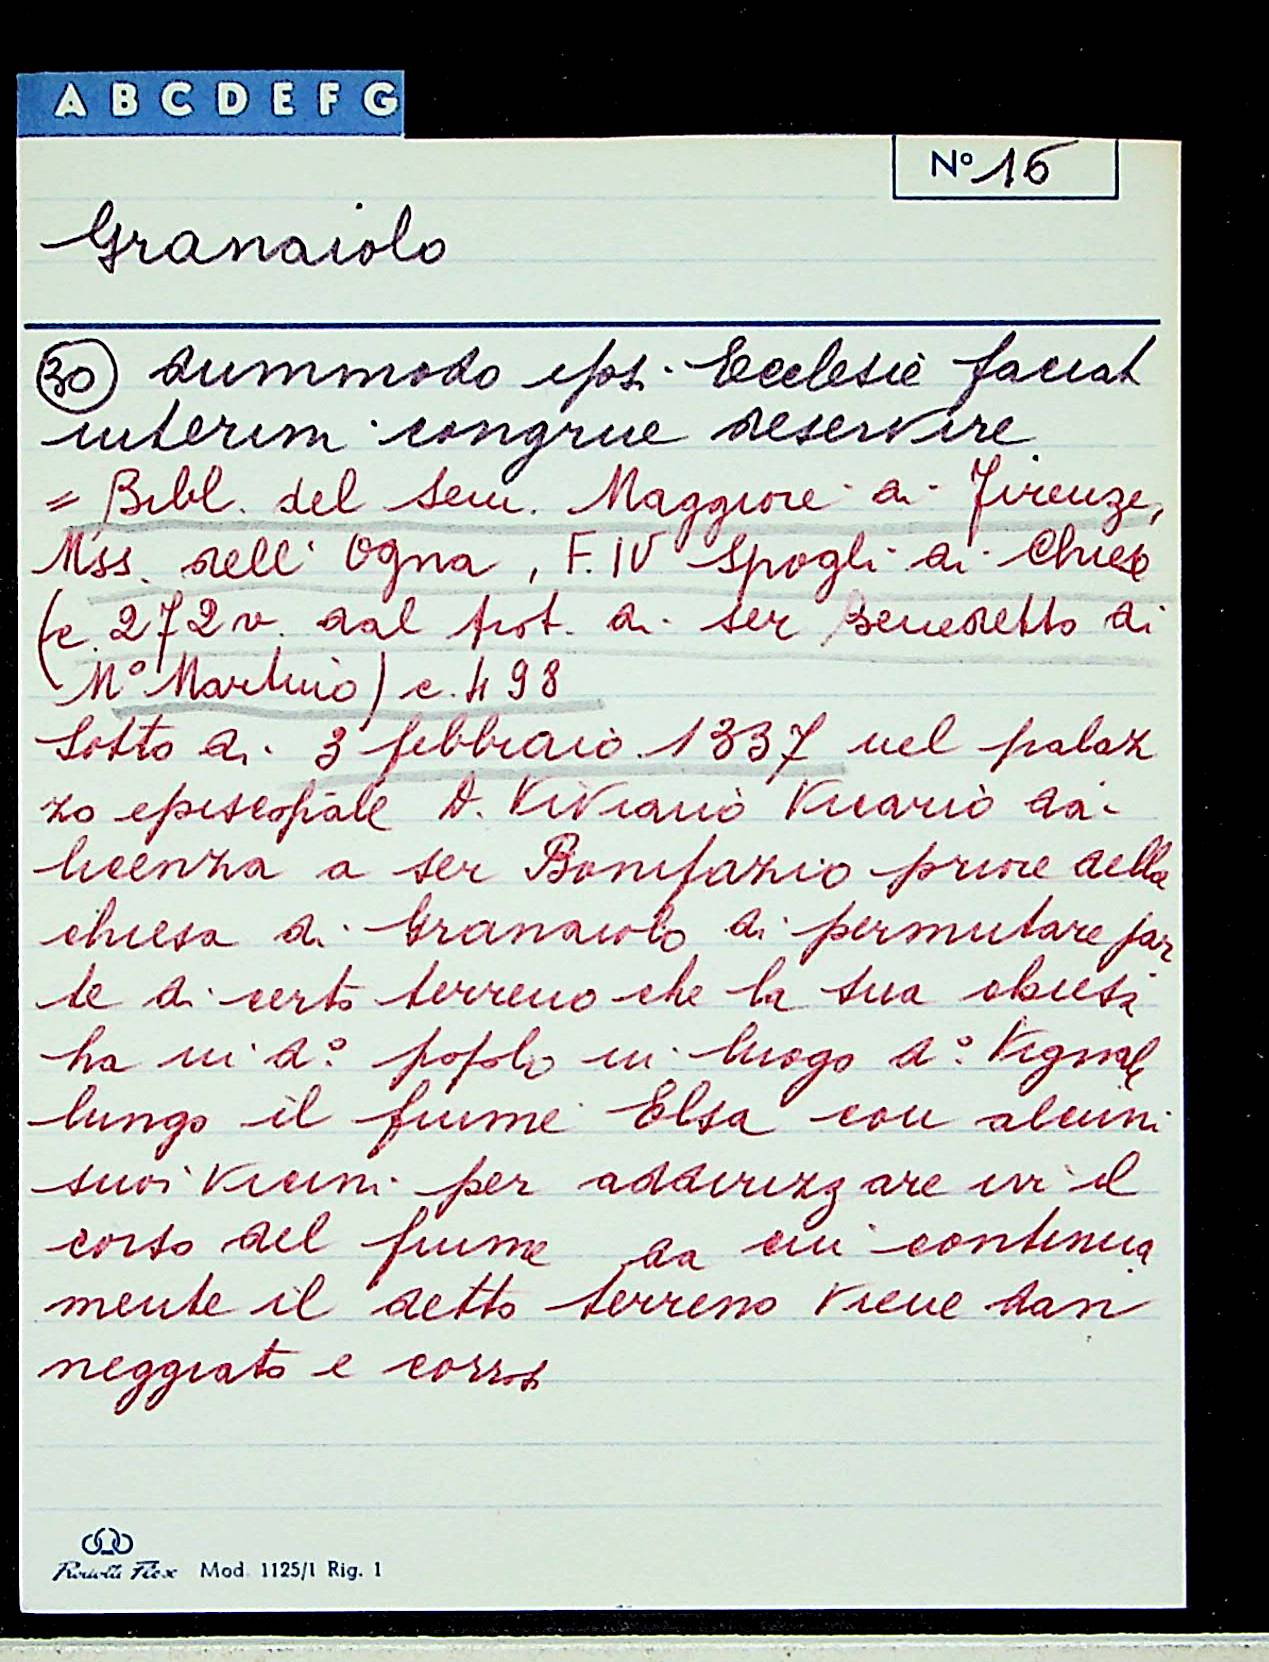 A B C D E F G
Nº 16
Granaiolo
30 dummodo ipsi Ecclesie faciat
interim congrue deservire
= Bibl. del Sem. Maggiore di Firenze,
Mss. dell'Ogna, F. IV Spogli di Chiese
(c. 272 v. dal prot. di ser Benedetto di
M° Martino) c. 498
Sotto di 3 febbraio 1337 nel palaz
zo episcopale D. Viviano Vicario dà
licenza a ser Bonifazio priore della
chiesa di Granaiolo di permutare par
te di certo terreno che la sua chiesa
ha in d° popolo in luogo d° Vignale
lungo il fiume Elsa con alcuni
suoi vicini per addirizzare ivi il
corso del fiume da cui continua
mente il detto terreno viene dan
neggiato e corroso
Mod. 1125/1 Rig. 1